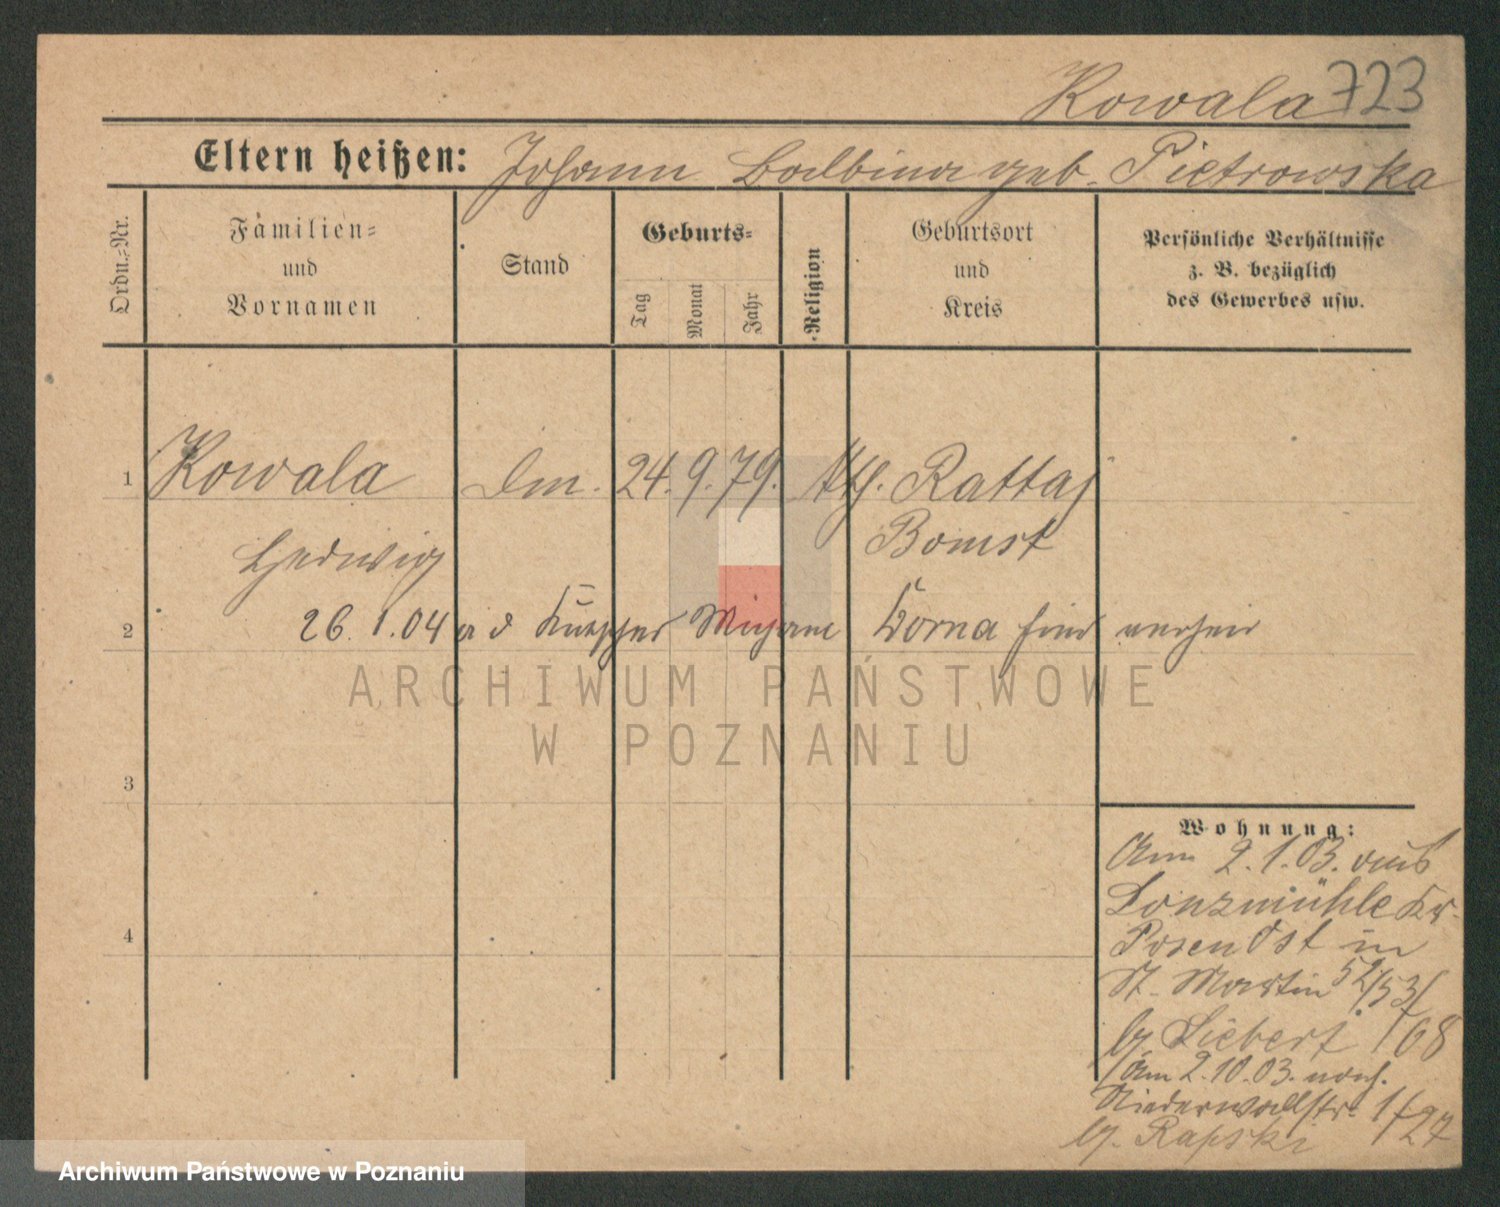 Kowala 723
Eltern heißen: Johann Balbina geb. Pietrowska
Ordn.-Nr.
Familien-
und
Vornamen
Stand
Geburts-
Tag
Monat
Jahr
Religion
Geburtsort
und
Kreis
Persönliche Verhältnisse
z. B. bezüglich
des Gewerbes usw.
1 Kowala Dm. 24. 9. 79. kth. Rattaj
Hedwig Bomst
2 26. 1. 04 a d
ARCHIWUM PAŃSTWOWE
W POZNANIU
3
4
Wohnung:
Am 2. 1. 03. aus
Lonzmühle Kr.
Posen Ost in
St. Martin 52/53/
by. Liebert. 168
Am 2. 10. 03. nach.
Niederwallstr. 1/27
by. Rapski
Archiwum Państwowe w Poznaniu